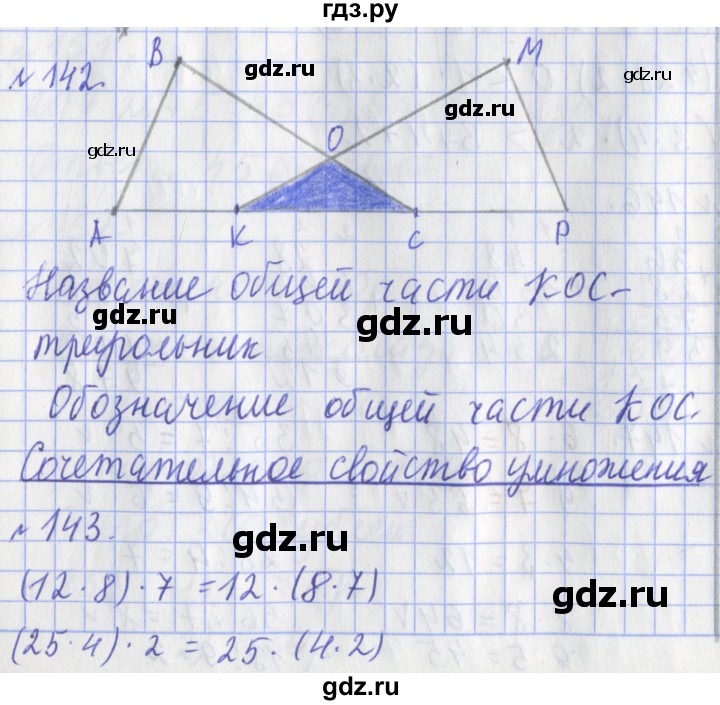 гдз.ру
№ 142.
B
M
gdz.ru
gdz.ru
gdz.ru
gdz.ru
O
A
K
C
P
Название общей части КОС-
gdz.ru
gdz.ru
треугольник
Обозначение общей части КОС.
Сочетательное свойство умножения
№ 143.
gdz.ru
(12·8)·7 = 12·(8·7)
gdz.ru
(25·4)·2 = 25·(4·2)
gdz.ru